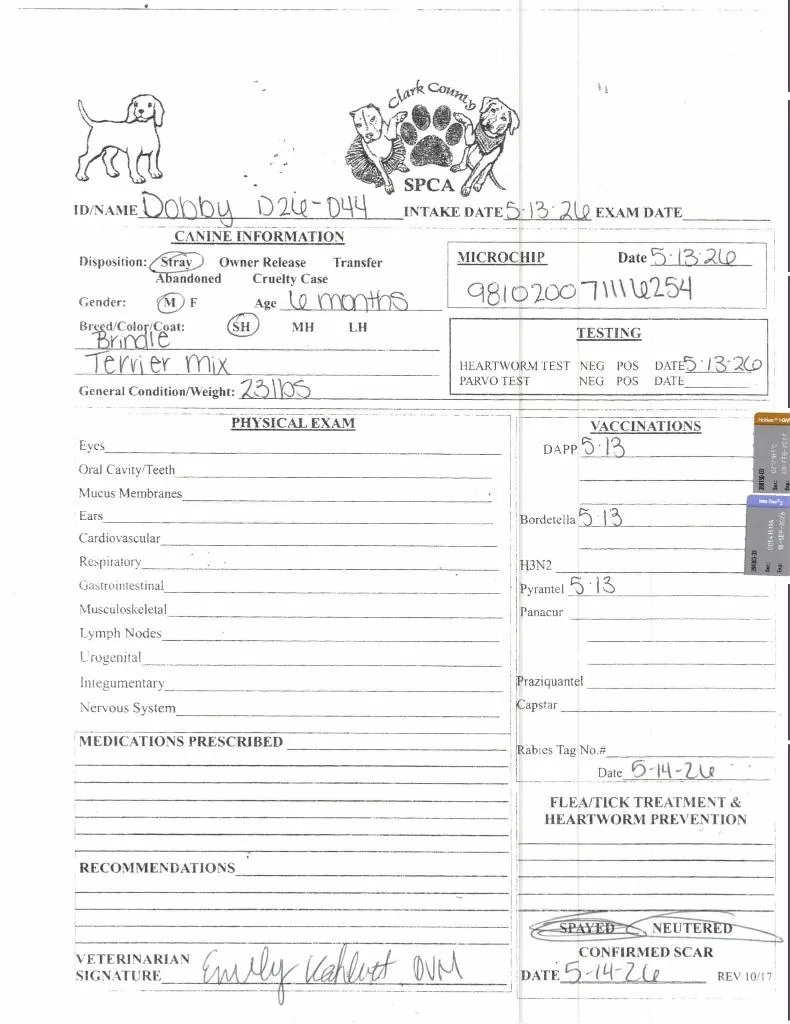 Clark County
SPCA
ID/NAME Dobby D26-044 INTAKE DATE 5-13-26 EXAM DATE
CANINE INFORMATION
Disposition: Stray Owner Release Transfer
Abandoned Cruelty Case
Gender: M F Age 6 months
Breed/Color/Coat: SH MH LH
Brindle
Terrier mix
General Condition/Weight: 23lbs
MICROCHIP Date 5-13-26
981020071116254
TESTING
HEARTWORM TEST NEG POS DATE 5-13-26
PARVO TEST NEG POS DATE
PHYSICAL EXAM
Eyes
Oral Cavity/Teeth
Mucus Membranes
Ears
Cardiovascular
Respiratory
Gastrointestinal
Musculoskeletal
Lymph Nodes
Urogenital
Integumentary
Nervous System
MEDICATIONS PRESCRIBED
RECOMMENDATIONS
VETERINARIAN
SIGNATURE Emily DVM
VACCINATIONS
DAPP 5-13
Bordetella 5-13
H3N2
Pyrantel 5-13
Panacur
Praziquantel
Capstar
Rabies Tag No.#
Date 5-14-26
FLEA/TICK TREATMENT &
HEARTWORM PREVENTION
SPAYED NEUTERED
CONFIRMED SCAR
DATE 5-14-26 REV 10/17